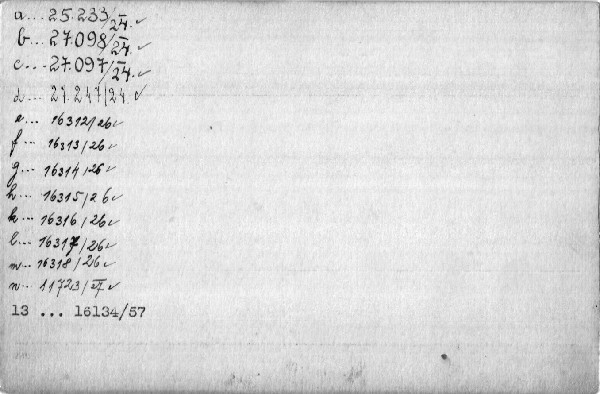 a... 25.233/V24. ✓
b... 27.098/V24. ✓
c... 27.097/V24 ✓
d... 27.247/24. ✓
e... 16312/26 ✓
f... 16313/26 ✓
g... 16314/26 ✓
h... 16315/26 ✓
k... 16316/26 ✓
l... 16317/26 ✓
m... 16318/26 ✓
n... 11723/ ✓
13 ... 16134/57